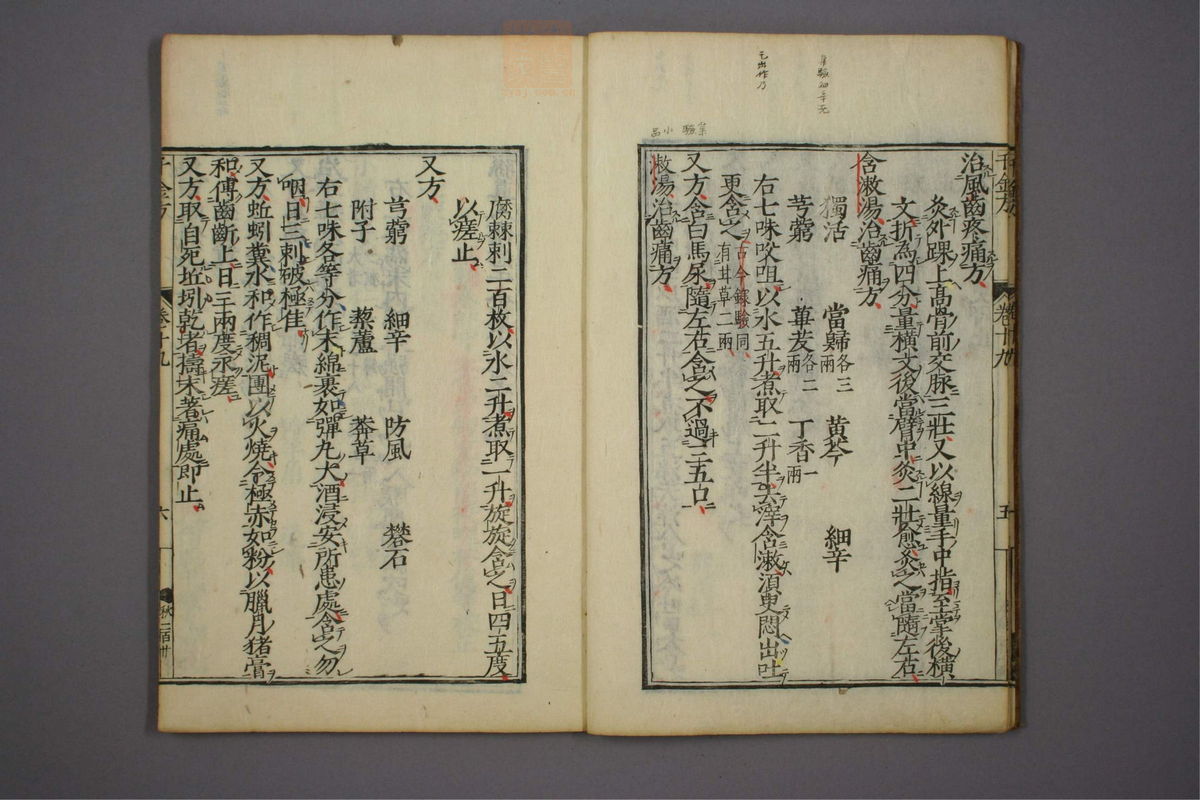 治風齒疼痛方
灸外踝上高骨前交脉三壯又以線量手中指至掌後横
文折為四分量横文後當臂中灸二壯愈灸之當隨左右
含漱湯治齒痛方
獨活 當歸各三兩 黄芩 細辛
芎藭 蓽茇各二兩 丁香一兩
右七味㕮咀以水五升煮取二升半去滓含漱湏㬰悶出吐
更含之古今録驗同有甘草二兩
又方含白馬尿隨左右含之不過三五口
漱湯治齒痛方
腐棘刺二百枚以水二升煮取一升旋旋含之日四五度
以瘥止
又方
芎藭 細辛 防風 礬石
附子 藜蘆 莽草
右七味各等分作末綿裹如彈丸大酒浸安所患處含之勿
咽日三刺破極佳
又方蚯蚓糞水和作稠泥團以火燒令極赤如粉以臘月猪膏
和傅齒齗上日三兩度永瘥
又方取自死蚯蚓乾者擣末著痛處即止
千金方
卷十九
五
千金方
卷十九
六